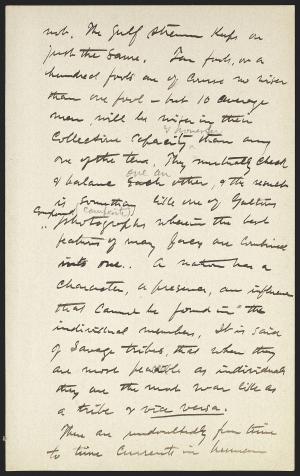 not. The Gulf stream keeps on
just the same. Ten fools, or a
hundred fools are of course no wiser
than one fool – but 10 average
men will be wiser in their
& honester
collective capacity than any
one of the ten. They mutually check
one an
& balance each other, & the result
is something like one of Galton's
Compound (composite)
photographs wherein the best
features of many faces are combined
into one. A nation has a
character, a presence, an influence
that cannot be found in the
individual members. It is said
of savage tribes, that when they
are most peaceable as individuals
they are the most war like as
a tribe & vice versa.
There are undoubtedly from time
to time currents in human